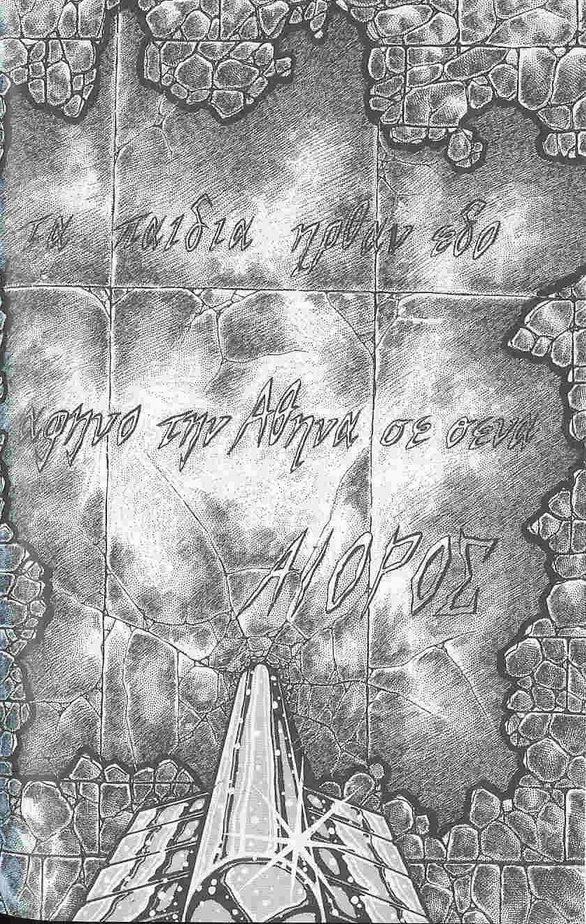 τα παιδια ηρθαν εδο
αφηνο την Αθηνα σε σενα
ΑΙΟΡΟΣ